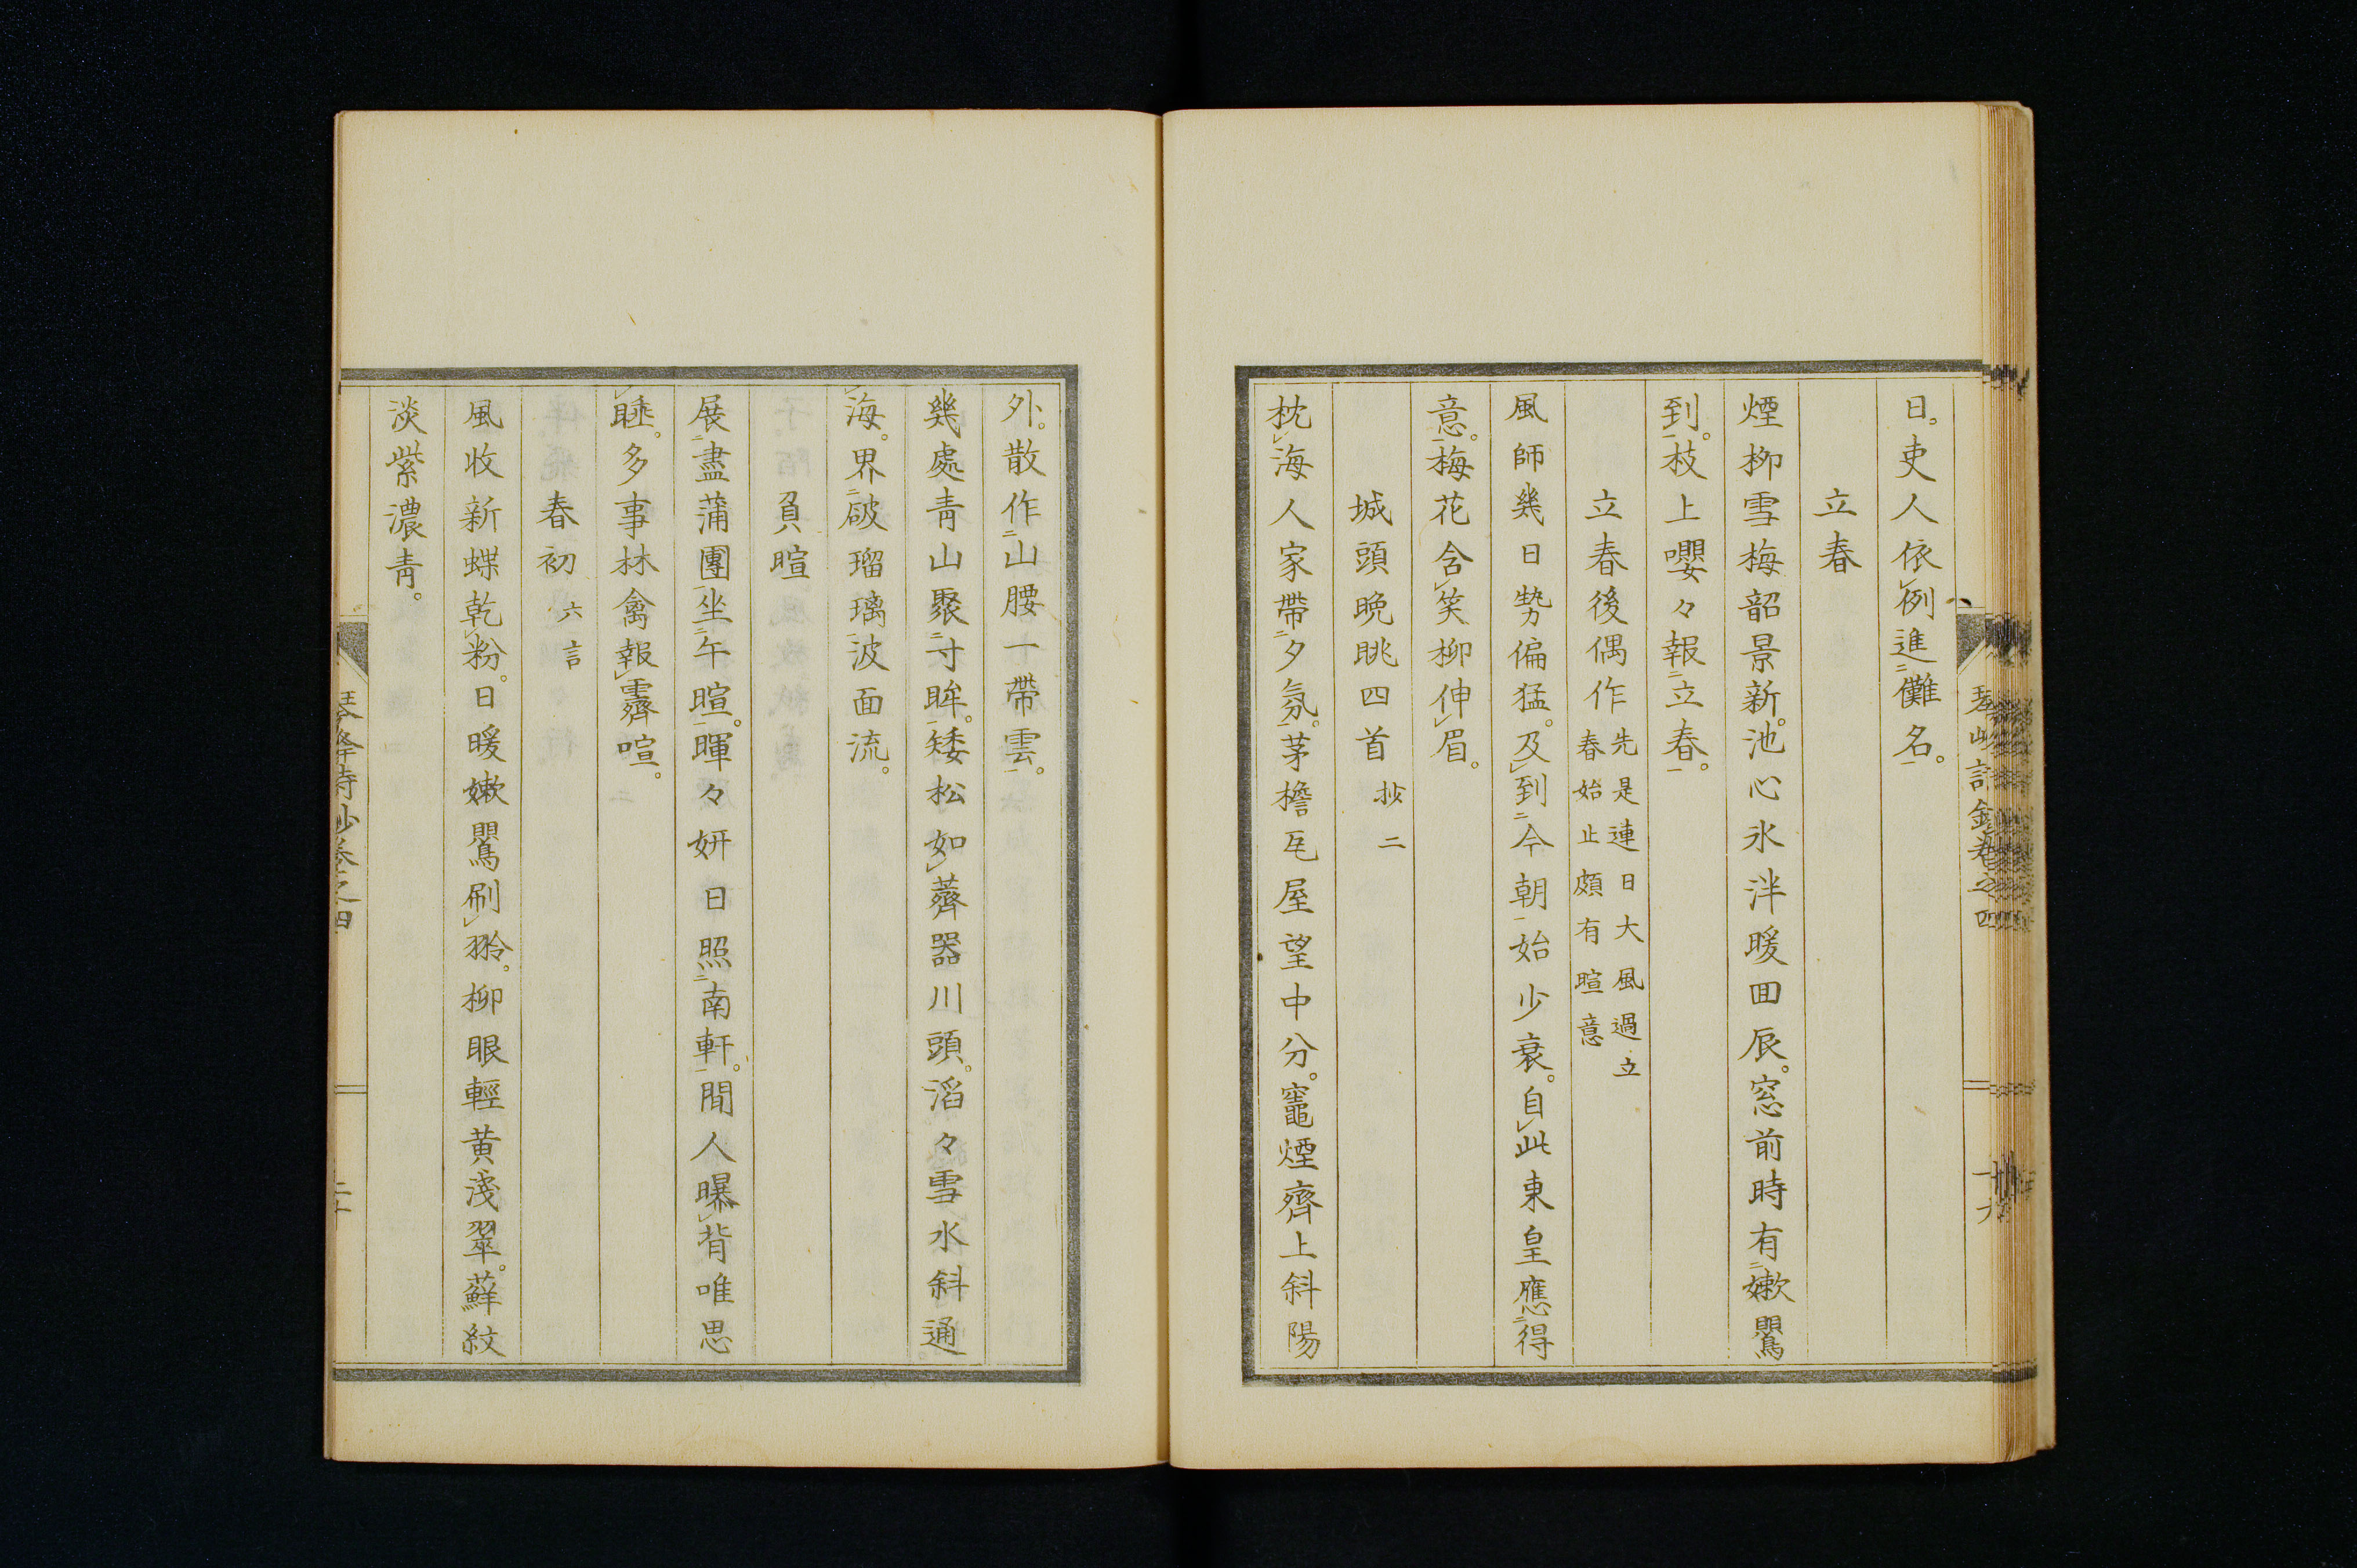 日。吏人依㆑例進㆓儺名㆒。
立春
煙柳雪梅韶景新。池心氷泮暖回辰。窓前時有㆓嫩鸎
到㆒。枝上嚶々報㆓立春㆒。
立春後偶作 先是連日大風過立
春始止頗有暄意
風師幾日勢偏猛。及㆑到㆓今朝㆒始少衰。自㆑此東皇應㆓得
意㆒。梅花含㆑笑柳伸㆑眉。
城頭晩眺四首 抄二
枕㆑海人家帶㆓夕氛㆒。茅檐瓦屋望中分。竈煙齊上斜陽
外。散作㆓山腰一帶雲㆒。
幾處青山聚㆓寸眸㆒。矮松如㆑薺器川頭。滔々雪水斜通
㆑海。界㆓破瑠璃㆒波面流。
負暄
展㆓盡蒲團㆒坐㆓午暄㆒。暉々妍日照㆓南軒㆒。閒人曝㆑背唯思
㆑睡。多事林禽報㆑霽喧。
春初 六言
風收新蝶乾㆑粉。日暖嫩鸎刷㆑翎。柳眼輕黄淺翠。蘚紋
淡紫濃青。